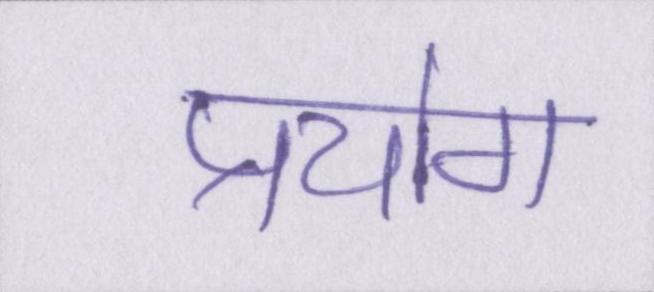 प्रयोग